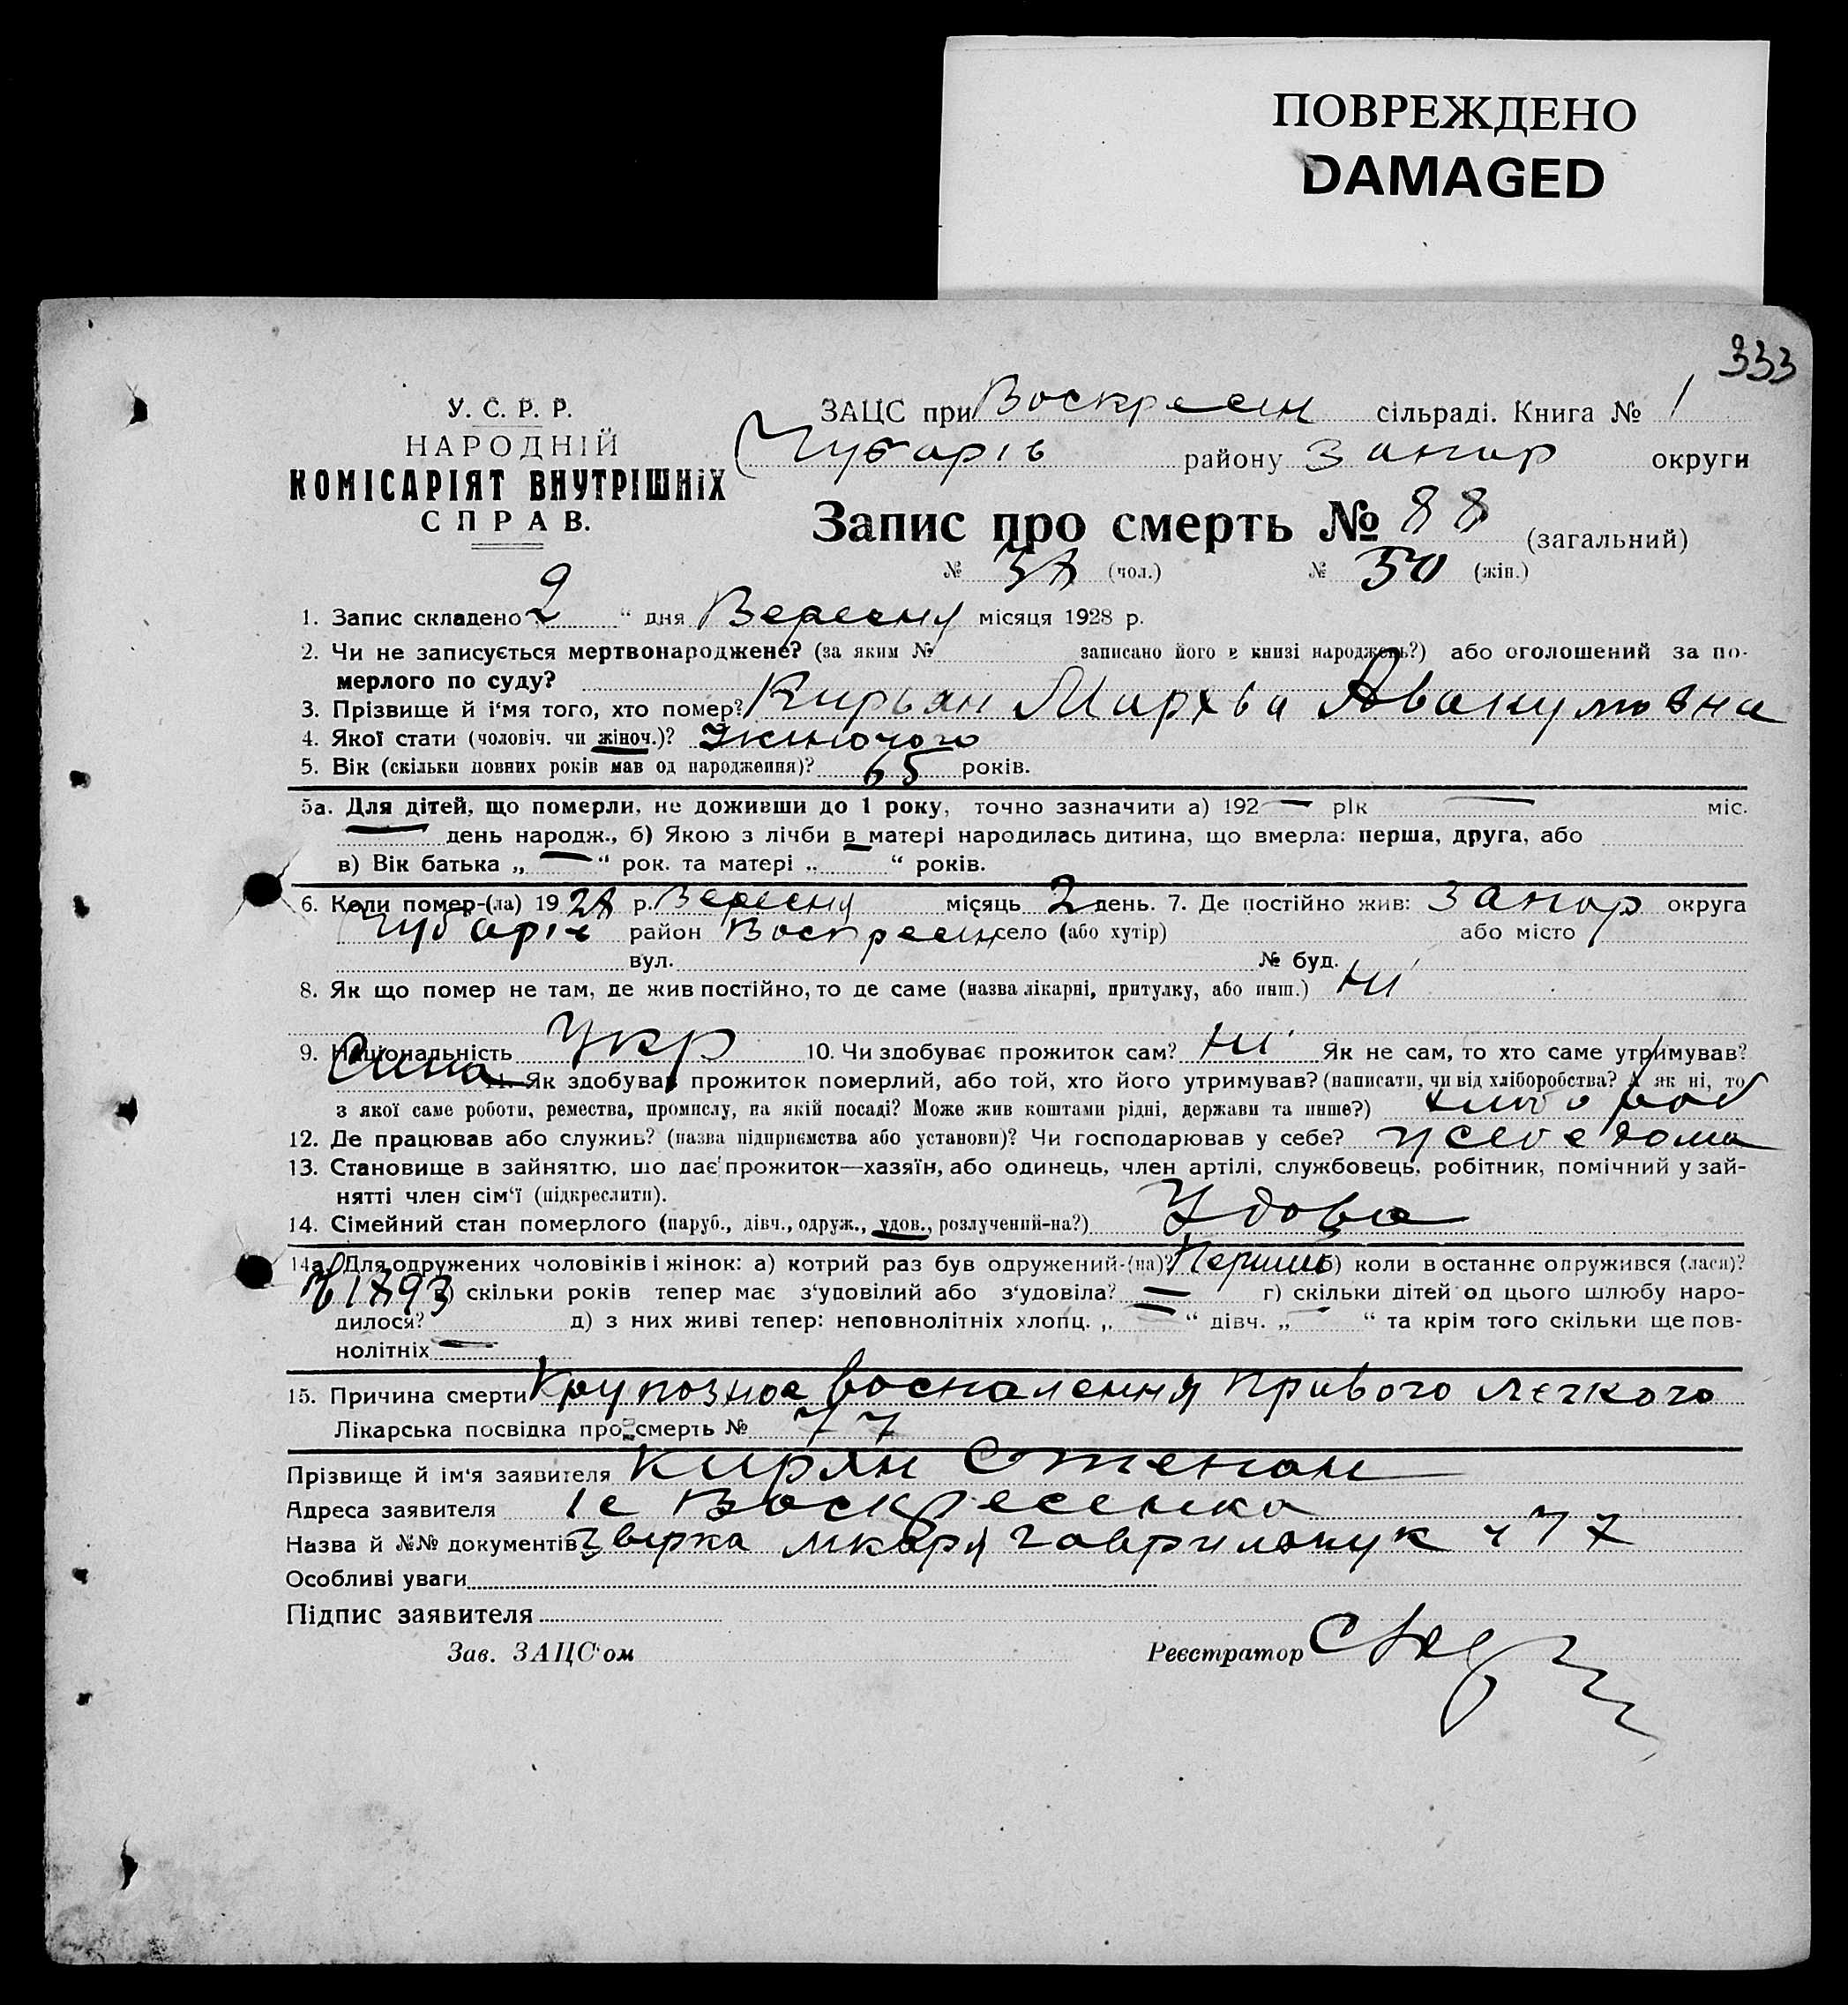 ПОВРЕЖДЕНО
DAMAGED
333
У. С. Р. Р.
НАРОДНІЙ
КОМІСАРІЯТ ВНУТРІШНІХ
СПРАВ.
ЗАЦС при Воскресен сільраді. Книга № 1
Чубарів району Запор округи
Запис про смерть № 88 (загальний)
№ 38 (чол.) № 50 (жін.)
1. Запис складено „ 2 “ дня Вересня місяця 1928 р.
2. Чи не записується мертвонароджене? (за яким № записано його в книзі народжень?) або оголошений за по-
мерлого по суду?
3. Прізвище й і'мя того, хто помер? Кирьян Мархва Авакумовна
4. Якої стати (чоловіч. чи жіноч.)? Жиночого
5. Вік (скільки повних років мав од народження)? 65 років.
5а. Для дітей, що померли, не доживши до 1 року, точно зазначити а) 192 — рік — міс.
— день народж., б) Якою з лічби в матері народилась дитина, що вмерла: перша, друга, або
в) Вік батька „ — “ рок. та матері „ “ років.
6. Коли помер-(ла) 1928 р. Вересня місяць 2 день. 7. Де постійно жив: Запор округа
Чубарів район Воскресен село (або хутір) або місто
вул. № буд.
8. Як що помер не там, де жив постійно, то де саме (назва лікарні, притулку, або инш.) Ні
9. Національність Укр 10. Чи здобуває прожиток сам? Ні Як не сам, то хто саме утримував?
Сина 11. Як здобував прожиток померлий, або той, хто його утримував? (написати, чи від хліборобства? А як ні, то
з якої саме роботи, ремества, промислу, на якій посаді? Може жив коштами рідні, держави та инше?) хлібороб
12. Де працював або служив? (назва підприємства або установи)? Чи господарював у себе? у себе дома
13. Становище в зайняттю, що дає прожиток—хазяїн, або одинець, член артілі, службовець, робітник, помічний у зай-
нятті член сім'ї (підкреслити).
14. Сімейний стан померлого (паруб., дівч., одруж., удов., розлучений-на?) Удова
14а. Для одружених чоловіків і жінок: а) котрий раз був одружений-(на)? Перший б) коли востаннє одружився (лася)?
1893 в) скільки років тепер має з'удовілий або з'удовіла? — г) скільки дітей од цього шлюбу наро-
дилося? д) з них живі тепер: неповнолітніх хлопц. „ — “ дівч. „ — “ та крім того скільки ще пов-
нолітніх —
15. Причина смерти Крупозное воспалення правого легкого
Лікарська посвідка про смерть № 77
Прізвище й ім'я заявителя Кирян Степан
Адреса заявителя с Воскресенка
Назва й №№ документів ликаря Гаврилопук 77
Особливі уваги
Підпис заявителя
Зав. ЗАЦС'ом Реєстратор